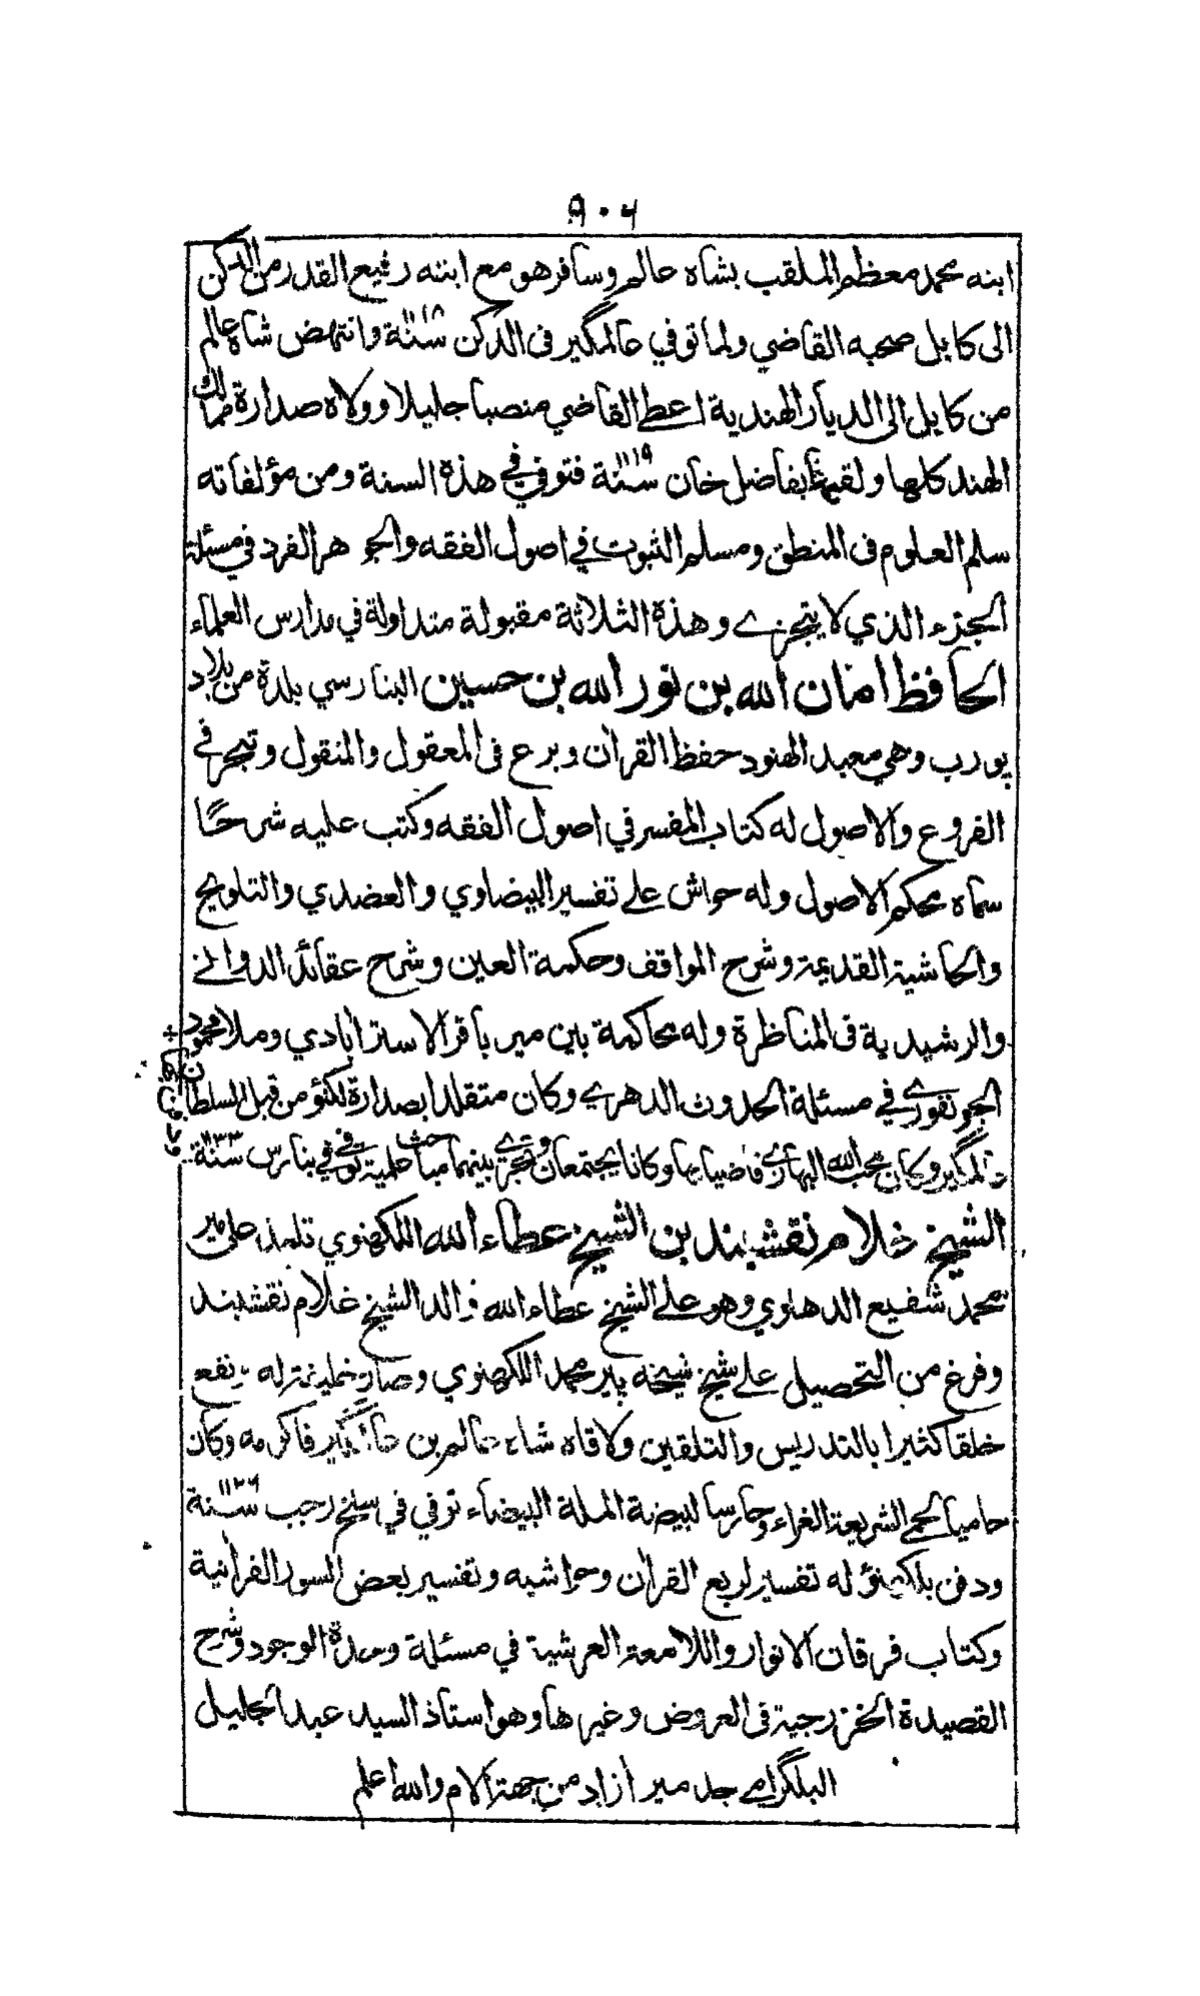 ٩٠٦
ابنه محمد معظم الملقب بشاه عالم وسافر هو مع ابنه رفيع القدر من الدكن
الى كابل صحبه القاضي ولما توفي عالمگير فى الدكن سنة ١١١٨ وانتهض شاه عالم
من كابل الى الديار الهندية اعطى القاضي منصبا جليلا وولاه صدارة ممالك
الهند كلها ولقبه بفاضل خان سنة ١١١٩ فتوفي في هذه السنة ومن مؤلفاته
سلم العلوم فى المنطق ومسلم الثبوت في اصول الفقه والجوهر الفرد في مسئلة
الجزء الذي لا يتجزے وهذه الثلاثة مقبولة متداولة في مدارس العلماء
الحافظ امان الله بن نور الله بن حسين البنارسي بلدة من بلاد
پورب وهي معبد الهنود حفظ القران وبرع فى المعقول والمنقول وتبحر في
الفروع والاصول له كتاب المفسر في اصول الفقه وكتب عليه شرحًا
سماه محكم الاصول وله حواش على تفسير البيضاوي والعضدي والتلويح
والحاشية القديمة وشرح المواقف وحكمة العين وشرح عقائد الدواني
والرشيدية فى المناظرة وله محاكمة بين مير باقر الاستراٰبادي وملا محمود
الجونفوري في مسئلة الحدوث الدهري وكان متقلدا بصدارة لكنؤ من قبل السلطان
عالمگير وكان محب الله البهاري قاضيا بها وكانا يجتمعان وتجري بينهما مباحث علمية توفي في بنارس سنة ١١٣٣
الشيخ غلام نقشبند بن الشيخ عطاء الله اللكهنوي تلمذ على مير
محمد شفيع الدهلوي وهو على الشيخ عطاء الله والد الشيخ غلام نقشبند
وفرغ من التحصيل على شيخ شيخه پير محمد اللكهنوي وصار خليفة له ونفع
خلقا كثيرا بالتدريس والتلقين ولاقاه شاه عالم بن عالمگير فاكرمه وكان
حاميا لحمى الشريعة الغراء وحارسا لبيضة الملة البيضاء توفي في سلخ رجب سنة ١١٢٦
ودفن بلكهنؤ له تفسير لربع القران وحواشيه وتفسير بعض السور القراٰنية
وكتاب فرقان الانوار واللامعة العرشية في مسئلة وحدة الوجود وشرح
القصيدة الخزرجية فى العروض وغيرها وهو استاذ السيد عبد الجليل
البلگرامي جد مير اٰزاد من جهة الام والله اعلم